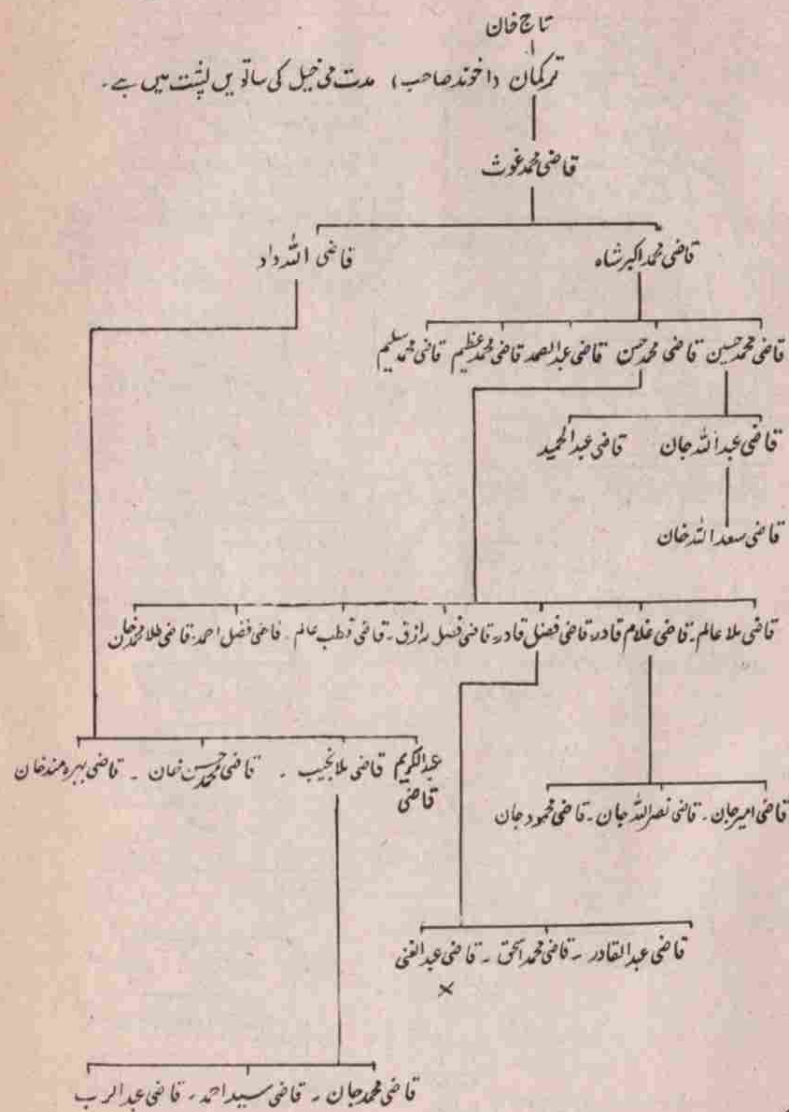 تاج خان
ترکمان (اخوند صاحب) مدت می خیل کی ساتویں پشت میں ہے۔
قاضی محمد غوث
قاضی محمد اکبر شاہ قاضی اللہ داد
قاضی محمد حسین قاضی محمد حسن قاضی عبدالصمد قاضی محمد عظیم قاضی محمد سلیم
قاضی عبداللہ جان قاضی عبدالحمید
قاضی سعد اللہ خان
قاضی ملا عالم۔ قاضی غلام قادر قاضی فضل قادر قاضی فضل رازق۔ قاضی قطب عالم۔ قاضی فضل احمد۔ قاضی طلا محمد خان
عبدالکریم قاضی ملا نجیب ۔ قاضی محمد حسن خان ۔ قاضی بہرہ مند خان
قاضی
قاضی امیر جان۔ قاضی نصر اللہ جان۔ قاضی محمود جان
قاضی عبدالقادر ۔ قاضی محمد اسحٰق ۔ قاضی عبدالغنی
×
قاضی محمد جان ۔ قاضی سید احمد ۔ قاضی عبدالرب